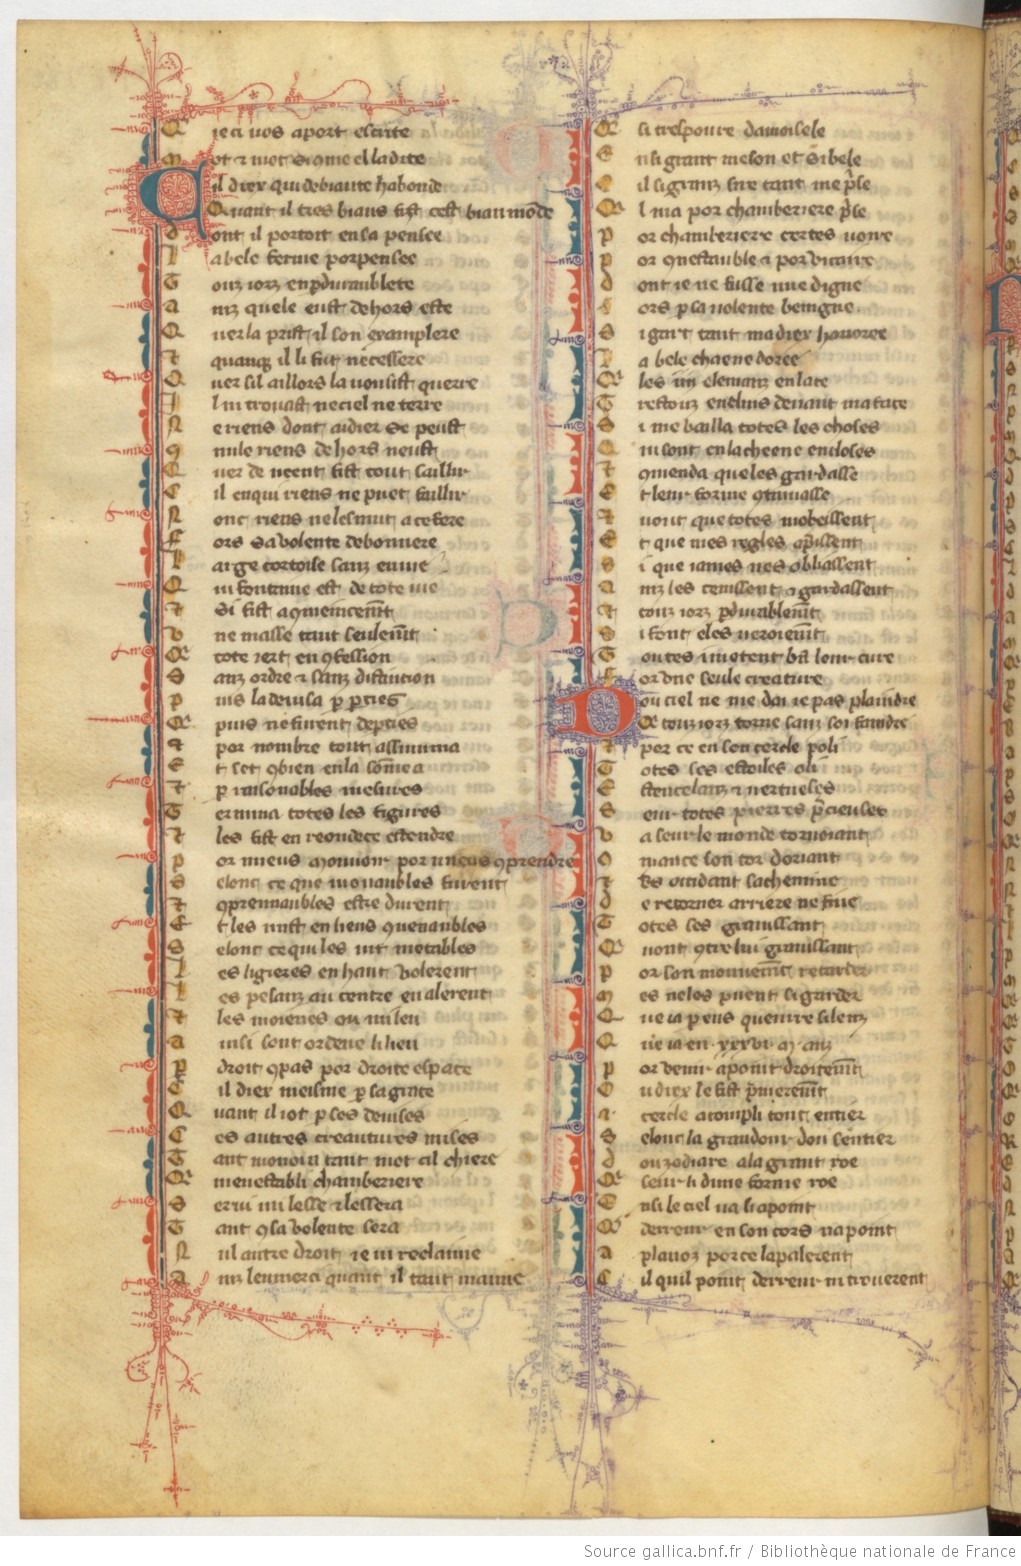 Q ie ci vos aport escrite
M ot a mot si ome el la dite
C il diex qui de biaute habonde
Quant il tres biaus fist cest biau monde
D ont il portoit en sa pensee
L a bele forme porpensee
T ouz iorz en pdurablete
A nz quele eust dehors este
Q uer la prist il son examplere
T quanq il li fut necessere
Q uer sil aillors la vousist querre
I l ni trouast ne ciel ne terre
N e riens dont aidier se peust
9 nule riens dehors neust
Q uer de neent fist tout saillir
C il en qui riens ne puet faillir
N onc riens ne les mut a ce fere
F ors sa volente debonnere
L arge cortoise sanz enuie
Q ui fontaine est de tote uie
T si fist a 9mencemt
V ne masse tant seulemt
Q tote iert en 9fession
S anz ordre et sanz distintion
P uis la deuisa p pties
Q puis ne furent depties
T por nombre tout assomma
E t set 9bien en la some a
T p raisonables mesures
T ermina totes les figures
T les fist en reondece estendre
P or mieus mouuoir por mieus 9prendre
S elonc ce que mouuables furent
T 9prennaubles estre durent
E t les mist en liens 9uenaubles
S elonc ce qui les uit metables
L es ligieres en haut volerent
L es pesanz au centre en alerent
T les moienes ou milieu
A insi sont ordene li lieu
P droit 9pas por droite espace
C il diex meisme p sa grace
Q uant il i ot p ses deuises
C es autres creautures mises
T ant monoia tant mot cil chiere
Q men establi chamberiere
S erui mi lesse et lessera
T ant 9 sa volente sera
N ul autre droit ie ni reclaime
A inz len merci quant il tant maime
Q si tres poure damoisele
E nsi grant meson et si bele
C il si granz sire tant me pse
Q l ma por chamberiere pse
P or chamberiere certes uoire
P or 9nestauble et por vicaire
D ont ie ne fusse mie digne
F ors p sa uolente benigne
S i gart tant ma diex honoree
L a bele chaene doree
Q les iiii elemanz enlace
T restouz enclins deuant ma face
S i me bailla totes les choses
Q ui sont en la cheene encloses
T 9menda que les gardasse
E t leur forme 9tinuasse
T uout que totes mobeissent
E t que mes regles apssent
S i que iames nes obliassent
A inz les tenissent et gardassent
A touz iorz pdurablemt
S i font eles ueroiemt
T outes i metent bn leur cure
F ors une seule creature
D ou ciel ne me doi ie pas plaindre
Qe touz iorz torne sanz soi faindre
T por ce en son cercle poli
T otes ses estoiles o li
E stencelanz et uertueses
S eur totes pierres pcieuses
V a seur le monde tornoiant
9 mance son cor doriant
T vers occidant sachemine
D e retorner arriere ne fine
T otes ses
Q uont 9tre lui grauissant
P or son mouuemt retarder
M es ne los puent si garder
Q ue ia p eus queure si lenz
Q ue ia en .xxxvi. m. anz
P or venir a point droitemt
O u diex le fist pmieremt
A cercle acompli tout entier
S elonc la grandour dou sentier
D ou zodiaque a la grant roe
Q seur li dune forme roe
E nsi le ciel ua si a point
Q derreur en son cors na point
A planoz por ce lapalerent
C il qui point derreur ni trouerent
Source gallica.bnf.fr / Bibliothèque nationale de France